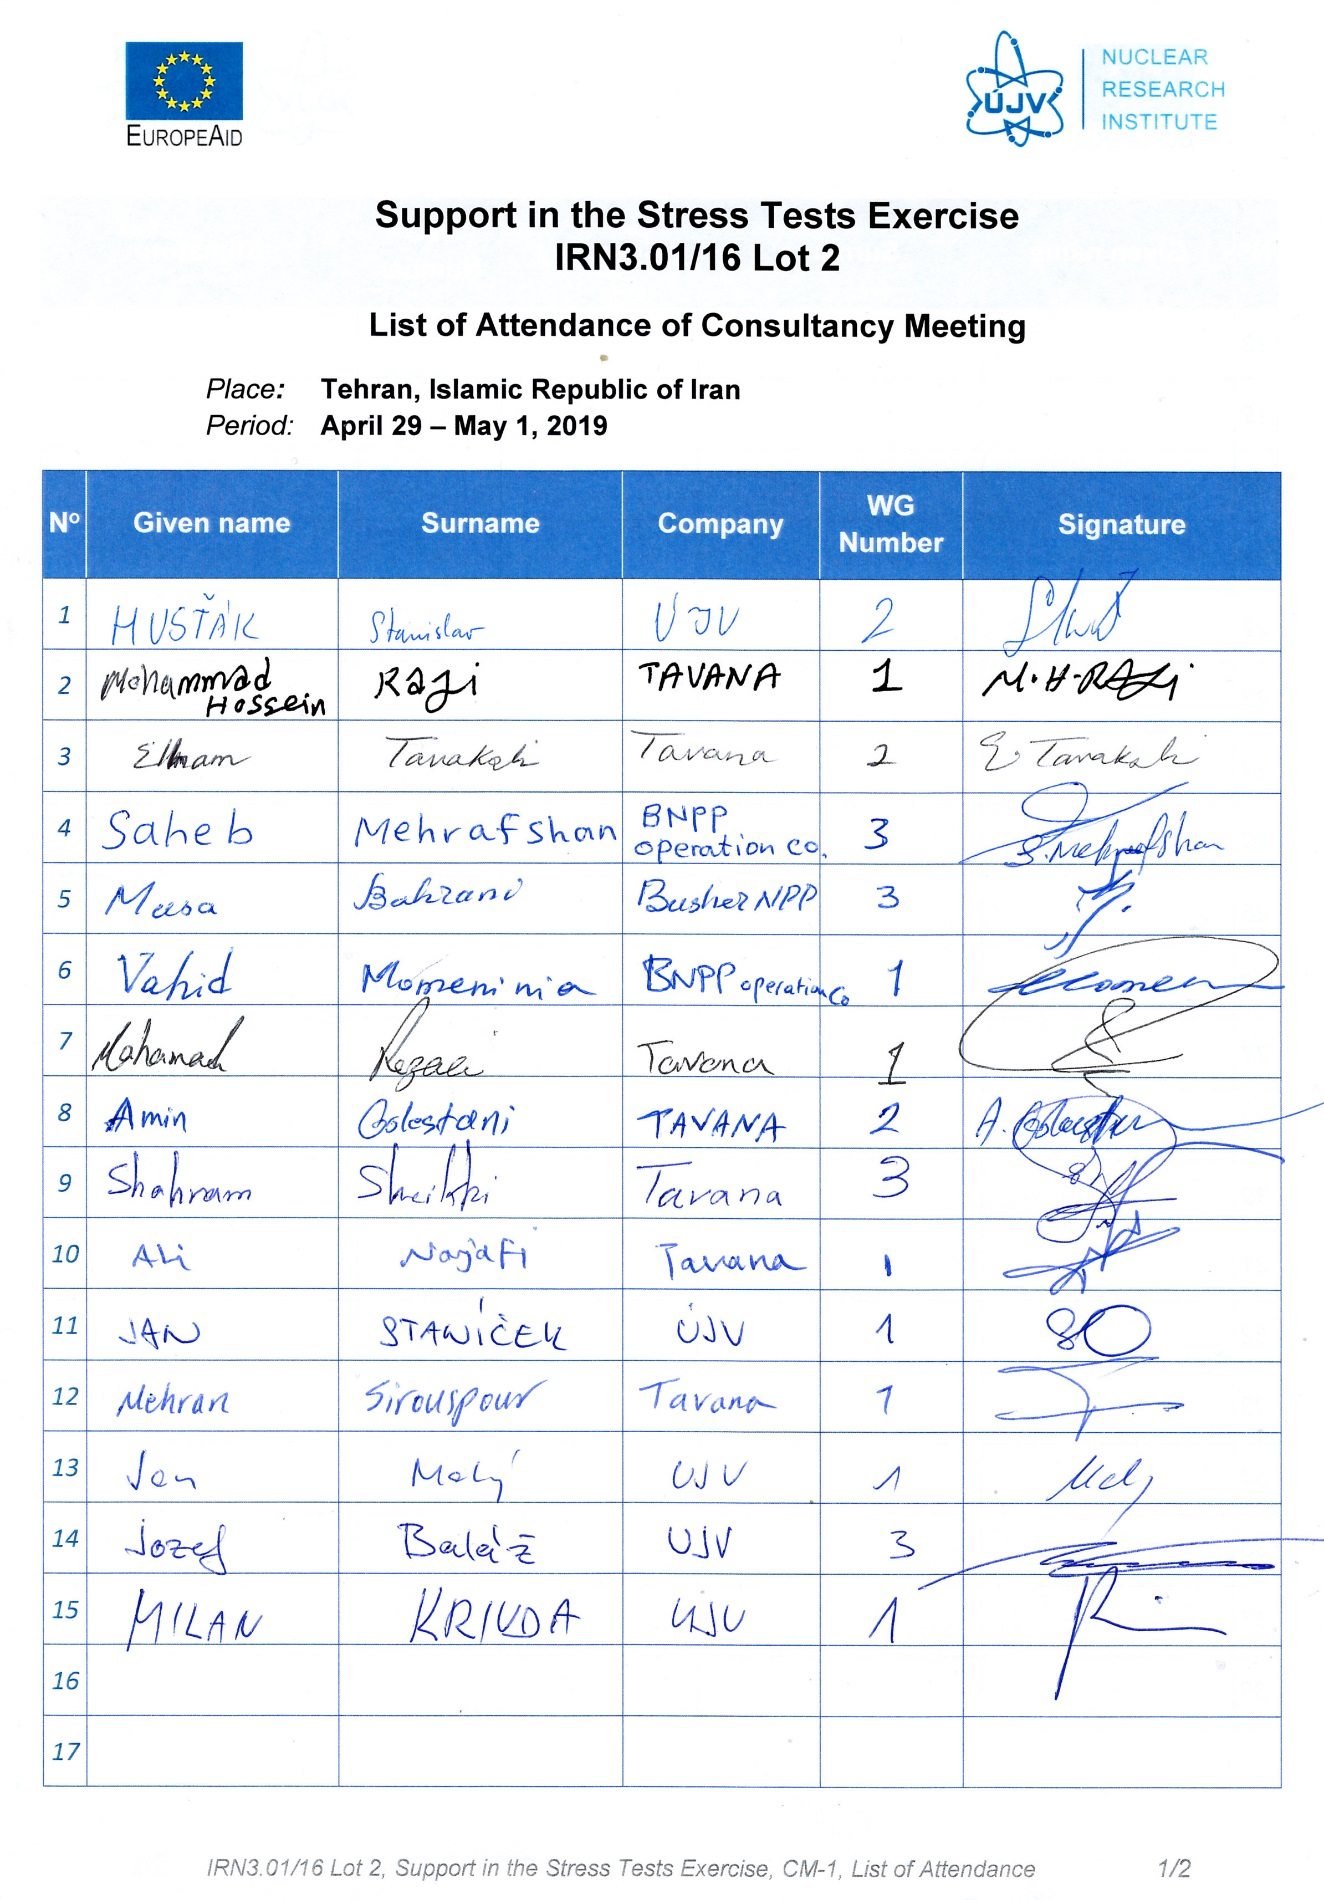 EUROPEAID
ÚJV
NUCLEAR
RESEARCH
INSTITUTE
Support in the Stress Tests Exercise
IRN3.01/16 Lot 2
List of Attendance of Consultancy Meeting
Place: Tehran, Islamic Republic of Iran
Period: April 29 – May 1, 2019
Nº Given name Surname Company WG Number Signature
1 HUSŤÁK Stanislav ÚJV 2
2 Mohammad Hossein Razi TAVANA 1 M.H.RAZi
3 Elham Tavakoli Tavana 2 E Tavakoli
4 Saheb Mehrafshan BNPP operation co. 3 S.Mehrafshan
5 Musa Bahrani Busher NPP 3
6 Vahid Momeninia BNPP operation Co 1
7 Mohamad Rezaei Tavana 1
8 Amin Golestani TAVANA 2 A.Golestani
9 Shahram Sheikhi Tavana 3
10 Ali Najafi Tavana 1
11 JAN STANÍČEK ÚJV 1
12 Mehran Sirouspour Tavana 1
13 Jan Malý UJV 1 Malý
14 Jozef Baláž UJV 3
15 MILAN KRIVDA UJV 1
16
17
IRN3.01/16 Lot 2, Support in the Stress Tests Exercise, CM-1, List of Attendance 1/2